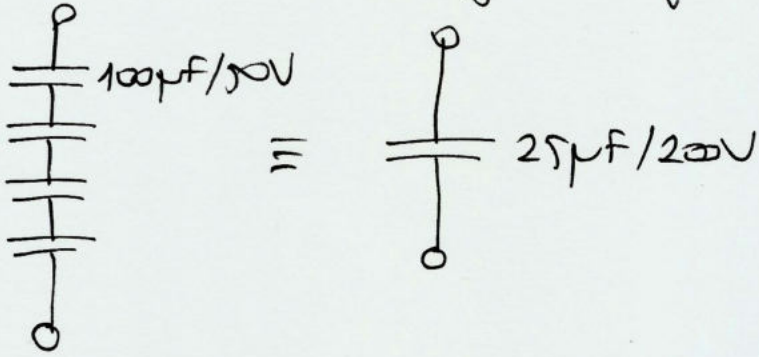 100µF/50V
≡ 25µF/200V